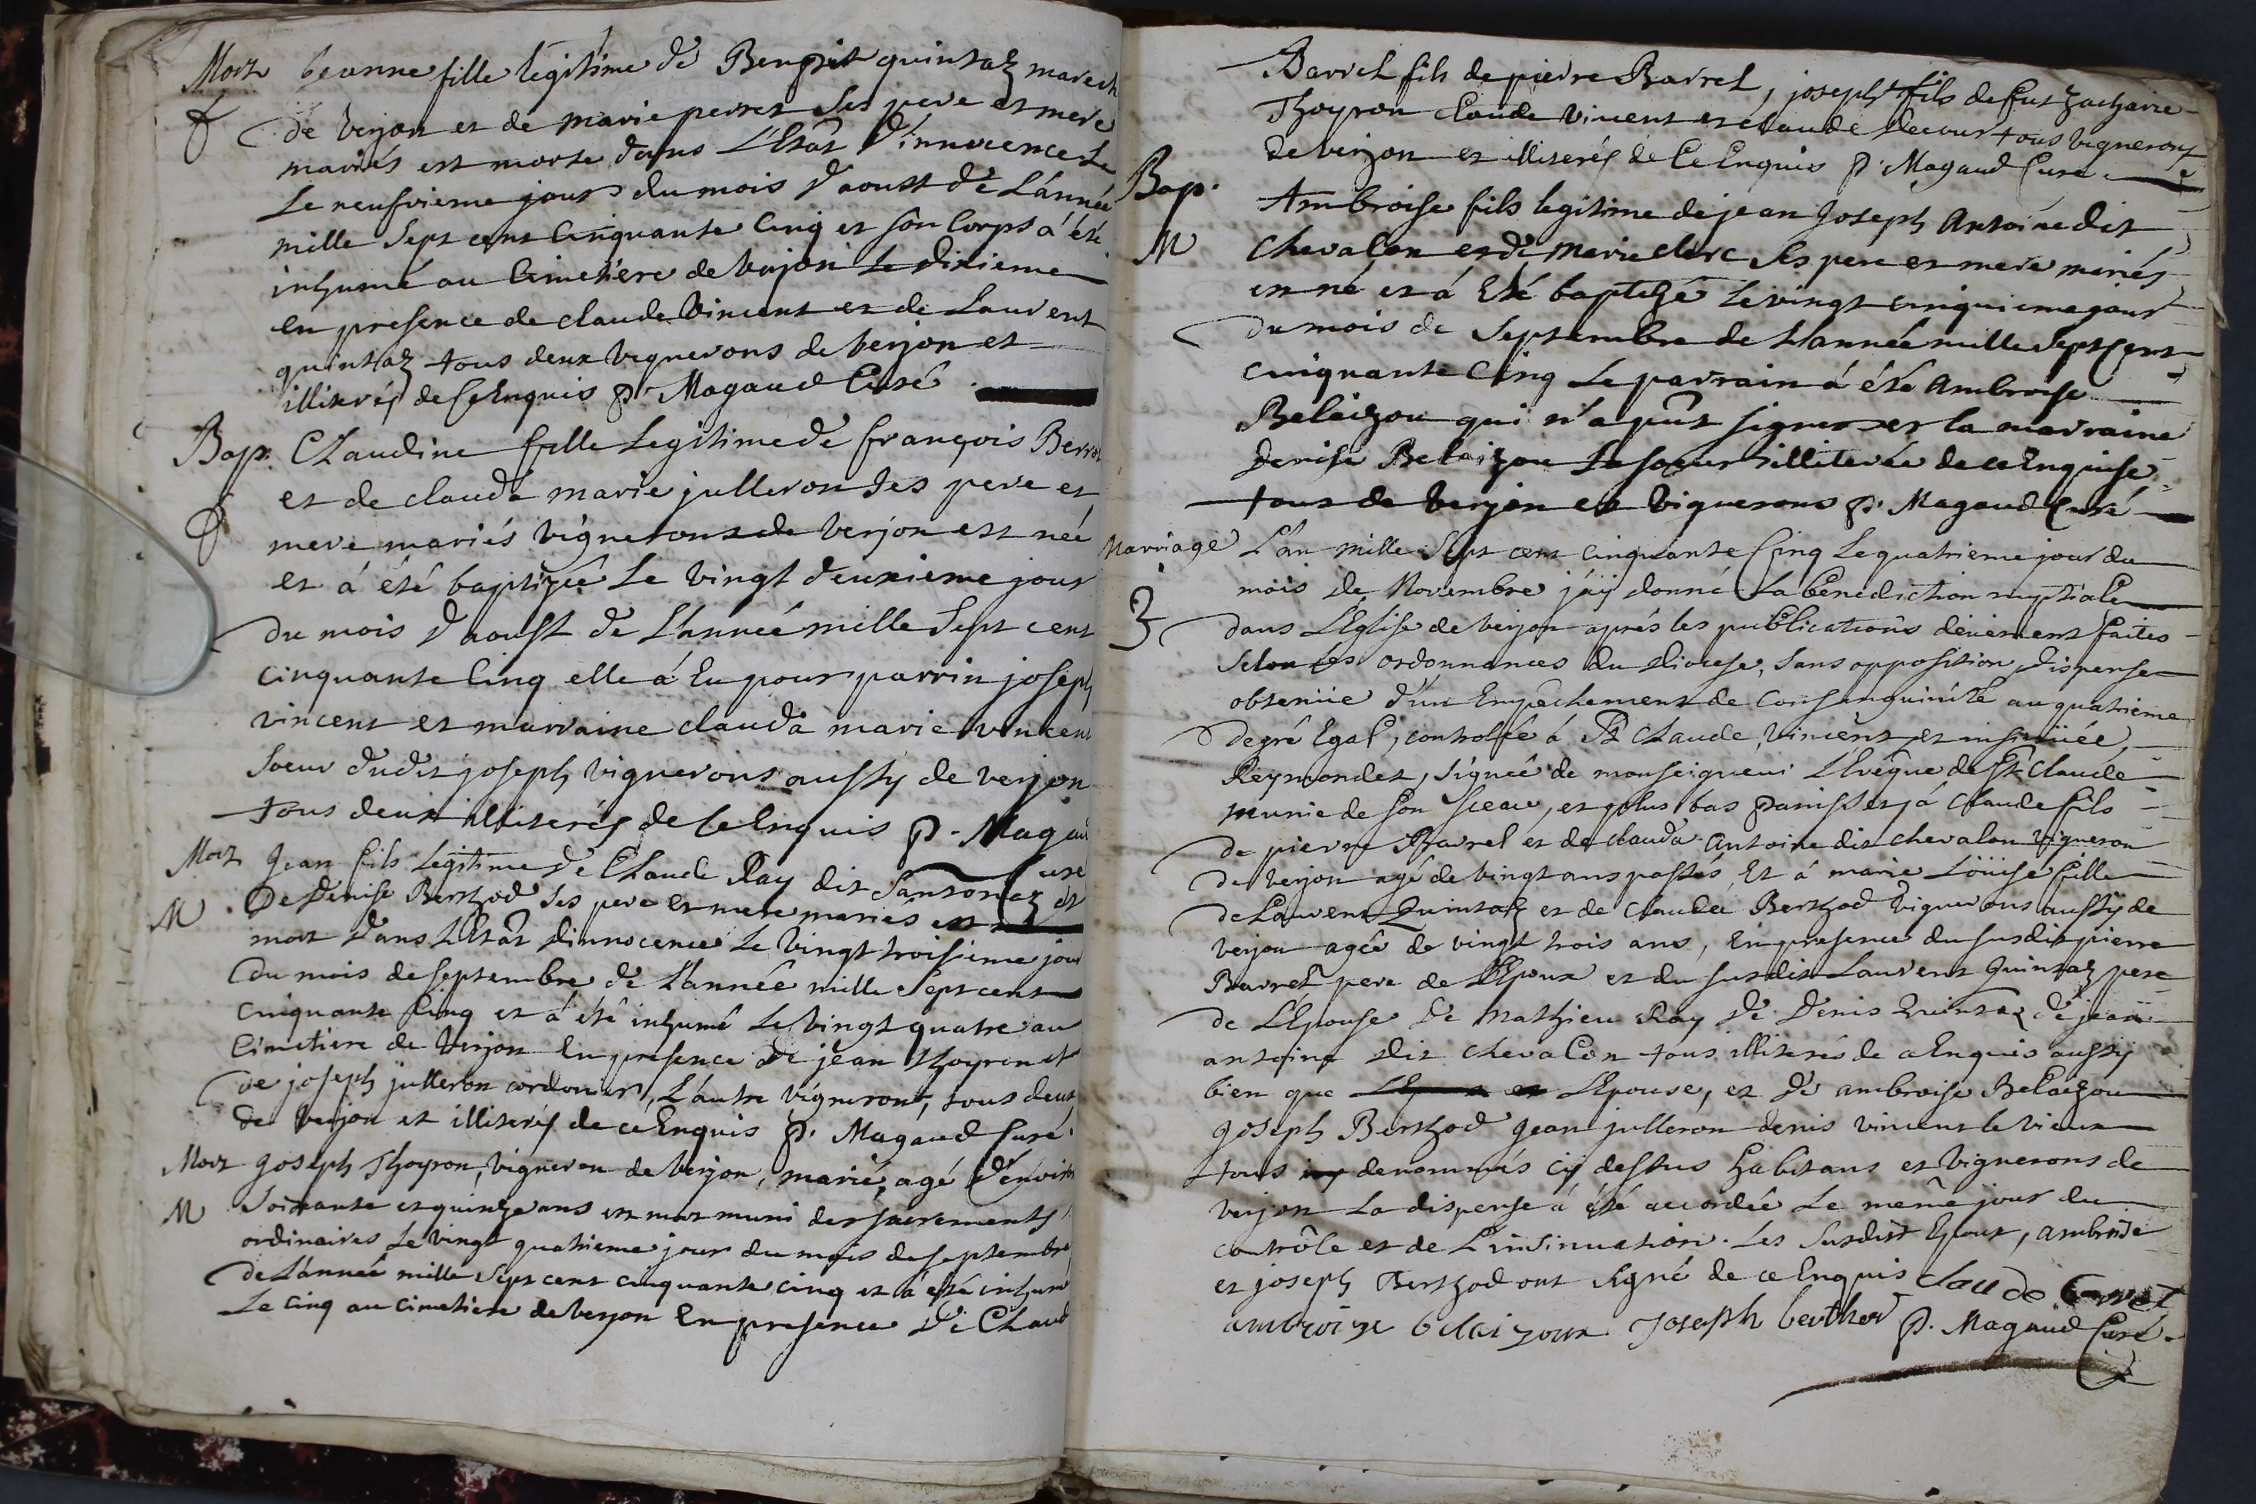 Mort jeanne fille legitime de Benoit quintaz marech
f de verjon et de marie perret ses pere et mere
mariés est morte dans L'Etat d'innocence Le
Le neufvieme jour du mois d'aoust de L'année
mille Sept cent Cinquante Cinq et son Corps á été
inhumé au Cimetiere de verjon Le dixieme
en presence de claude Vincent et de Laurent
quintaz tous deux vignerons de verjon et
illiterés de ce Enquis P. Magaud Curé.
Bap. Claudine fille Legitime de françois Berr
f et de clauda marie julleron ses pere et
mere mariés vignerons de verjon est née
et á été baptizeé Le vingt deuxieme jour
du mois d'aoust de L'année mille Sept cent
cinquante Cinq elle á Eu pour parrin joseph
vincent et marraine clauda marie vincent
soeur dudit joseph vignerons aussy de verjon
tous deux illiterés de ce Enquis P. Magau
Curé
Mort jean fils Legitime de Claude Ray dit Santonax et
M De Denise Berthod ses pere et mere mariés est
mort dans L'Etat d'innocence Le vingt troisieme jour
du mois de septembre de L'année mille Sept cent
Cinquante Cinq et á été inhumé Le vingt quatre au
Cimetiere de Verjon En presence de jean Thoyron et
de joseph julleron cordonier, L'autre vigneron, tous deux
de verjon et illiterés de ce Enquis P. Magaud Curé
Mort joseph Thoyron, vigneron de verjon, marié, agé d'environ
M Soixante et quinze ans est mort muni des sacrements
ordinaires Le vingt quatrieme jour du mois de septembre
de L'année mille Sept cent cinquante cinq et á été inhumé
Le cinq au cimetiere de verjon En presence de Claud
Barrel fils de pierre Barrel, joseph fils de fut Zacharie
Thoyron claude vincent et claude Decour tous vignerons
de verjon et illiterés de ce Enquis P. Magaud Curé.
Bap. Ambroise fils legitime de jean joseph Antoine dit
M Chevalon et de Marie clerc ses pere et mere mariés
est né et á Eté baptizé Le vingt cinquieme jour
du mois de Septembre de L'année mille Sept Cent
Cinquante Cinq Le parrain á été Ambroise
Belaizou qui n'a pût signer et la marraine
denise Belaizou sa soeur illiterée de ce Enquise
tous de verjon et vignerons P. Magaud Curé
Marriage L'an mille Sept cent Cinquante Cinq Le quatrieme jour du
3 mois de Novembre j'áy donné La benediction nuptiale
dans L'Eglise de verjon aprés les publications deüement faites
Selon les ordonnances du diocese, sans opposition, dispense
obtenüe d'un Empechement de Consanguinité au quatrieme
degré Egal, controllée á St Claude, vincent et insinüée,
Reymondet, signeé de monseigneur L'Evéque de St Claude
munie de son sceau, et plus bas á Claude fils
de pierre Barrel et de clauda Antoine dit chevalon vigneron
de verjon agé de vingt ans passés, Et á marie Loüise fille
de Laurent Quintaz et de Claudа Berthod vignerons aussy de
verjon agée de vingt trois ans, En presence du susdit pierre
Barrel pere de L'Epoux et du susdit Laurent Quintaz pere
de L'Epouse De Mathieu Ray De Denis Quintaz de jean
antoine dit chevalon tous illiterés de ce Enquis aussy
bien que L'Epouse, et de ambroise Belaizou
joseph Berthod jean julleron denis vincent le vieux
tous denommés cy dessus habitans et vignerons de
verjon La dispense á été accordée Le même jour du
contrôle et de L'insinuation. Les susdits Epoux, ambroise
et joseph Berthod ont Signé de ce Enquis claude barrel
ambroise belaizoux Joseph berthod P. Magaud Curé.